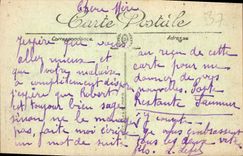 Chère Mère
Carte Postale
Correspondance
Adresse
J'espère que vous
allez mieux et
que votre malaise
a complètement disparu
j'espère que Robert
est toujours bien sage
sinon ne le manquez
pas, faite moi écrire
un mot de suite
au reçu de cette
carte pour me
donner de vos
nouvelles, Poste
Restante Saumur
et qui
vous embrassent
Tous les deux votre
fils